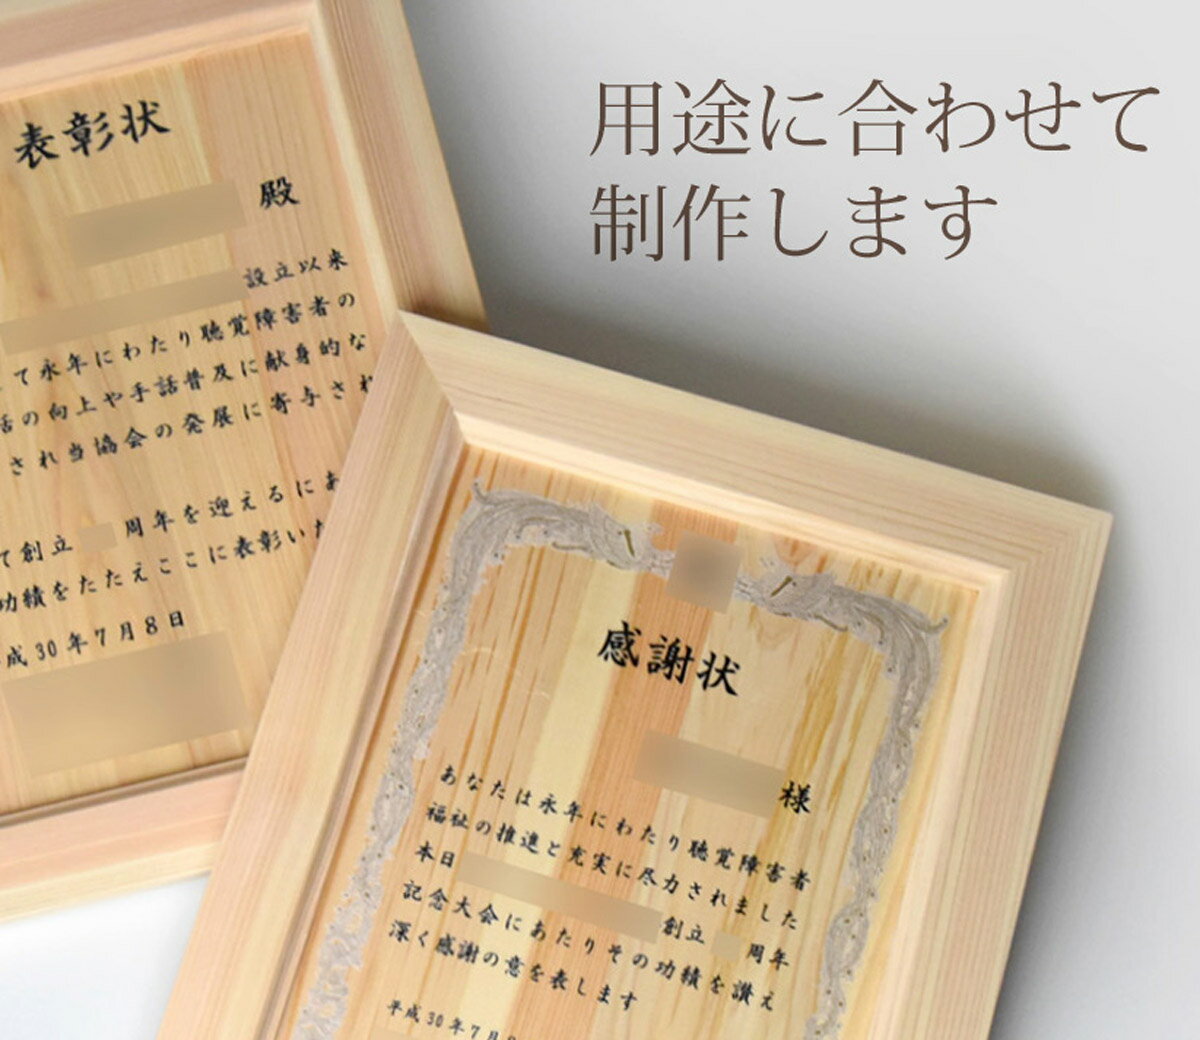 用途に合わせて
制作します
表彰状
殿
設立以来
て永年にわたり聴覚障害者の
活の向上や手話普及に献身的な
され当協会の発展に寄与され
て創立 周年を迎えるにあ
功績をたたえここに表彰いた
成30年7月8日
感謝状
様
あなたは永年にわたり聴覚障害者
福祉の推進と充実に尽力されました
本日 創立 周年
記念大会にあたりその功績を讃え
深く感謝の意を表します
平成30年7月8